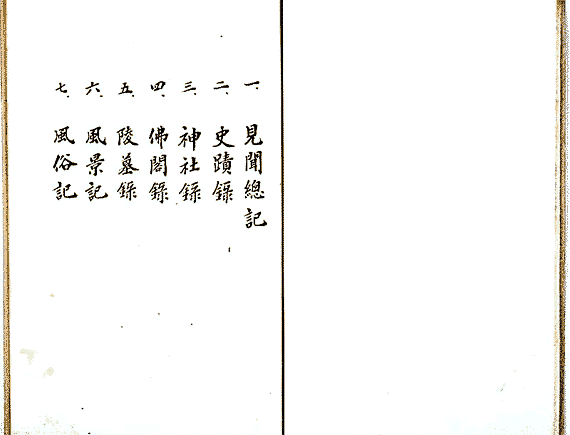 一、見聞總記
二、史蹟錄
三、神社錄
四、佛閣錄
五、陵墓錄
六、風景記
七、風俗記